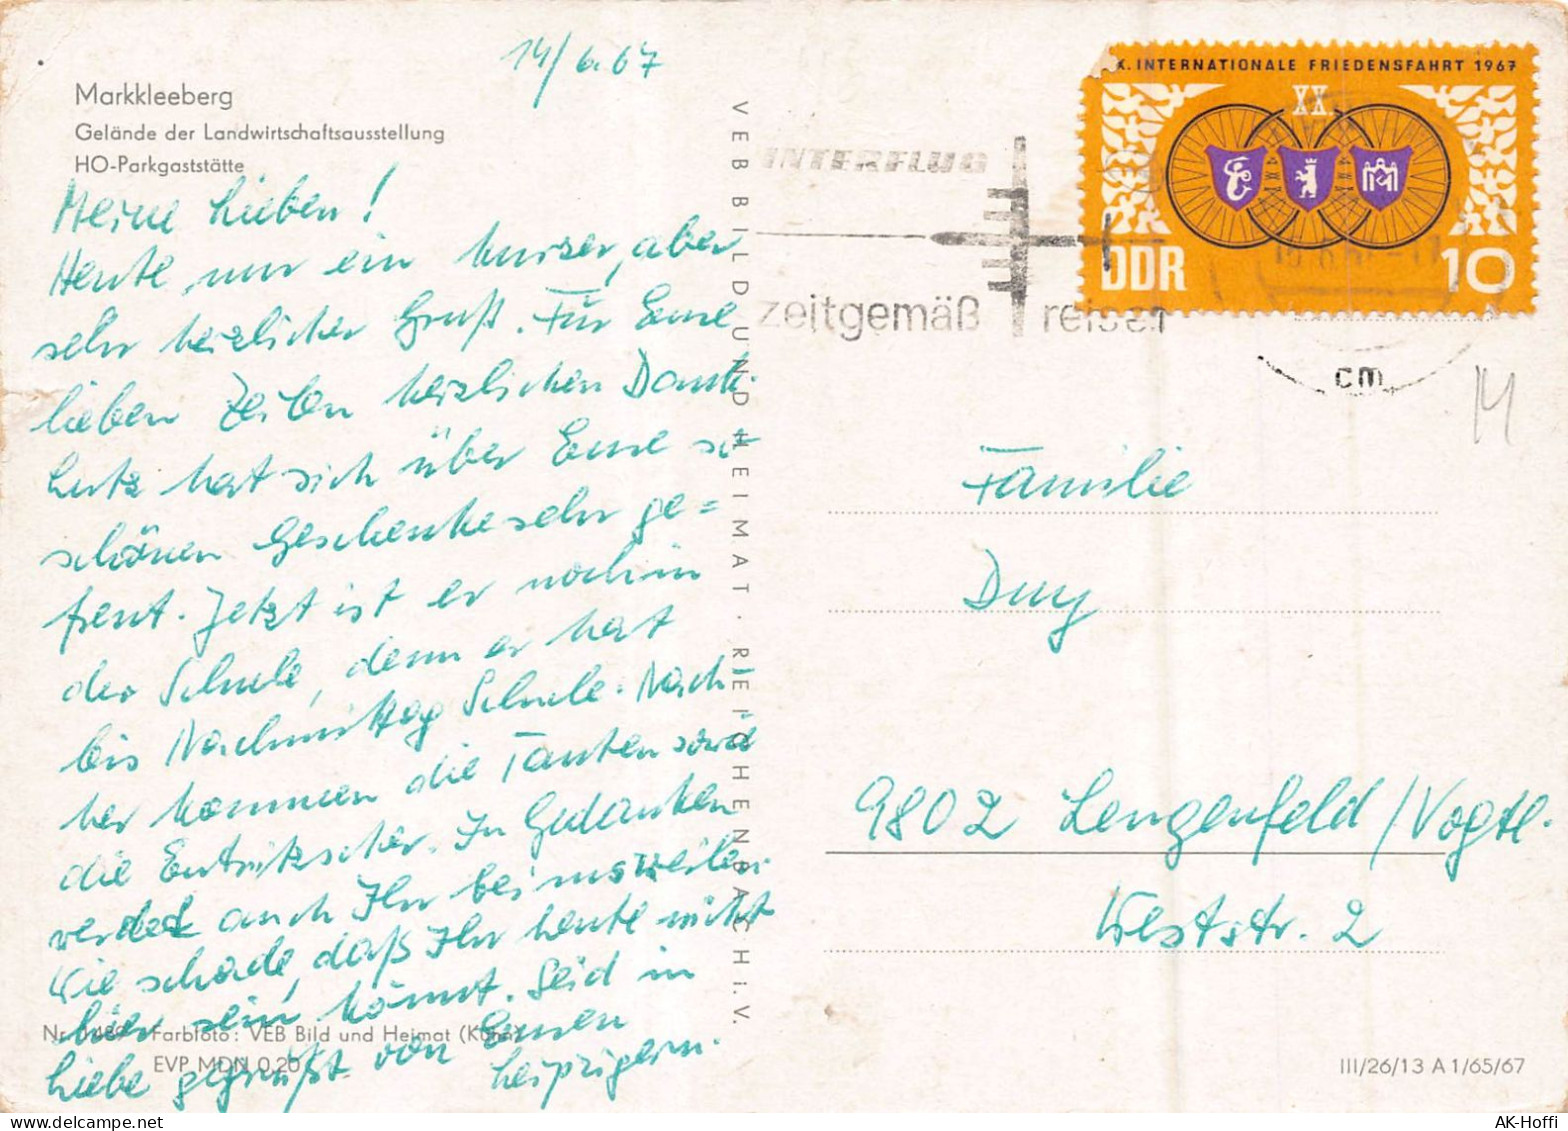 14/6.67
Markkleeberg
Gelände der Landwirtschaftsausstellung
HO-Parkgaststätte
Meine Lieben!
Heute nur ein kurzer, aber
sehr herzlicher Gruß. Für Eure
lieben Zeilen herzlichen Dank.
Lutz hat sich über Eure so
schönen Geschenke sehr ge=
freut. Jetzt ist er noch in
der Schule, denn er hat
bis Nachmittag Schule. Nach-
her kommen die Tanten und
die Eutritzscher. In Gedanken
werdet auch Ihr bei uns weilen.
Wie schade, daß Ihr heute nicht
hier sein könnt. Seid in
Liebe gegrüßt von Euren
Leipzigern.
Nr. Farbfoto: VEB Bild und Heimat
EVP MDN 0,20
VEB BILD UND HEIMAT · REICHENBACH I. V.
INTERFLUG
zeitgemäß reisen
X. INTERNATIONALE FRIEDENSFAHRT 1967
XX
DDR
10
cm
M
Familie
9802 Lengenfeld/Vogtl.
Weststr. 2
III/26/13 A 1/65/67
AK-Hoffi